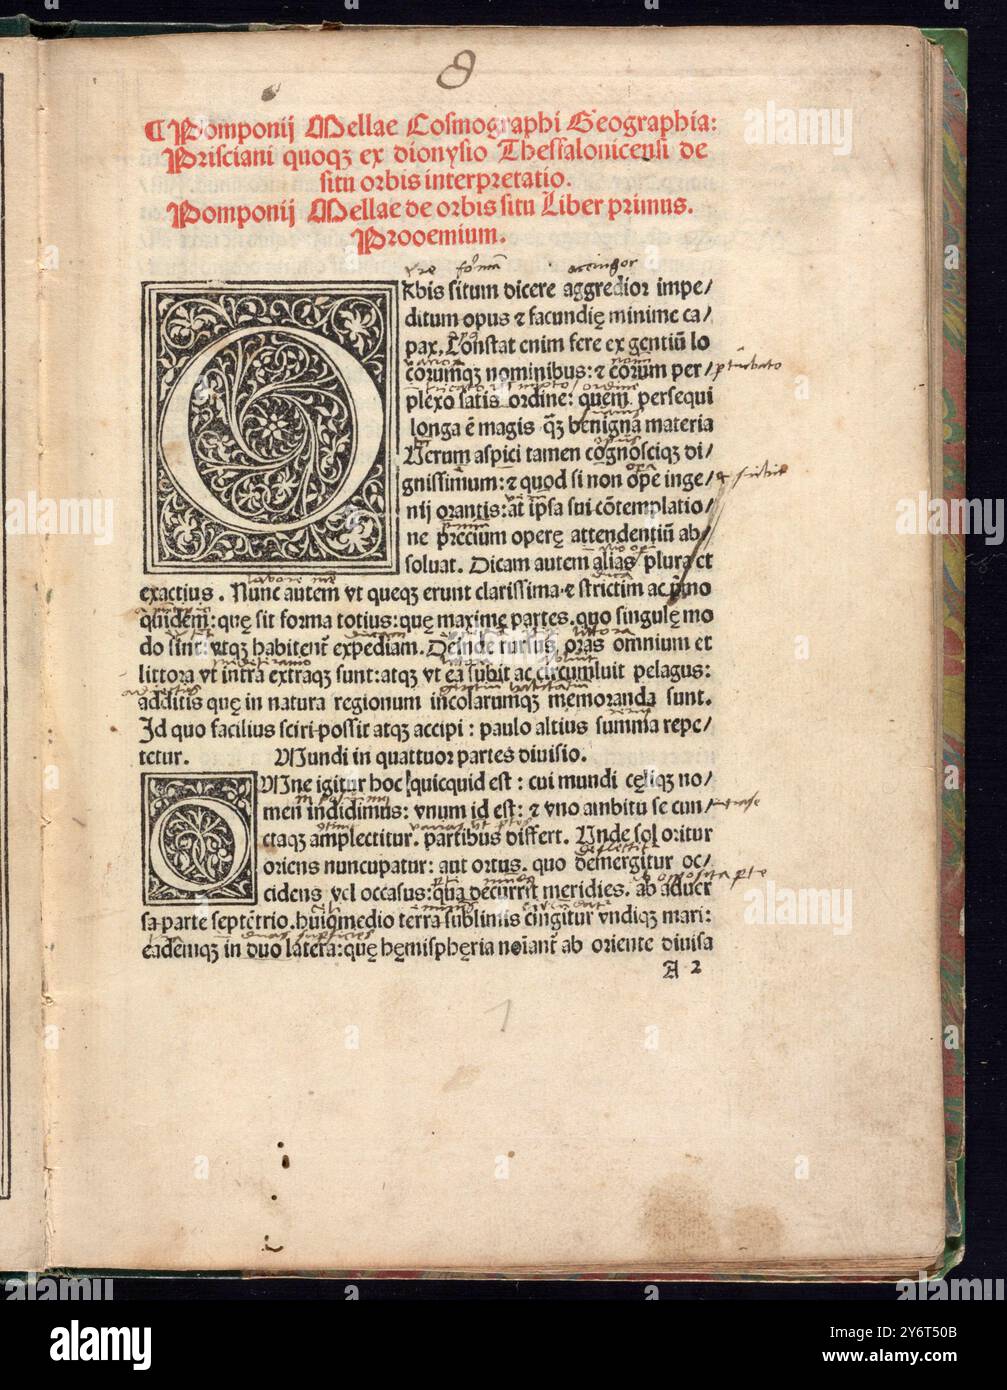 8
¶ Pomponij Mellae Cosmographi Geographia:
Prisciani quoqꝫ ex dionysio Thessalonicensi de
situ orbis interpretatio.
Pomponij Mellae de orbis situ Liber primus.
Prooemium.
ORbis situm dicere aggredior impe/
ditum opus ⁊ facundię minime ca/
pax. Constat enim fere ex gentiū lo
corumqꝫ nominibus: ⁊ eorum per/
plexo satis ordine: quem persequi
longa ē magis qꝫ benigna materia
Verum aspici tamen cognosciqꝫ di/
gnissimum: ⁊ quod si non ope inge/
nij orantis: at ipsa sui cōtemplatio/
ne precium operę attendentiū ab/
soluat. Dicam autem alias plura et
exactius. Nunc autem vt queqꝫ erunt clarissima ⁊ strictim ac pͥmo
quidem: quę sit forma totius: quę maximę partes. quo singulę mo
do sint: vtqꝫ habitent expediam. Deinde rursus oras omnium et
littora vt intra extraqꝫ sunt: atqꝫ vt ea subit ac circumluit pelagus:
additis quę in natura regionum incolarumqꝫ memoranda sunt.
Id quo facilius sciri possit atqꝫ accipi: paulo altius summa repe/
tetur. Mundi in quattuor partes diuisio.
OMne igitur hoc quicquid est: cui mundi cęliqꝫ no/
men indidimus: vnum id est: ⁊ vno ambitu se cun
ctaqꝫ amplectitur. partibus differt. Vnde sol oritur
oriens nuncupatur: aut ortus. quo demergitur oc/
cidens vel occasus: qua decurrit meridies. ab aduer
sa parte septētrio. huiꝰ medio terra sublimis cingitur vndiqꝫ mari:
eademqꝫ in duo latera: quę hęmisphęria noiant̄ ab oriente diuisa
A 2
1
alamy
Image ID: 2Y6T50B
www.alamy.com